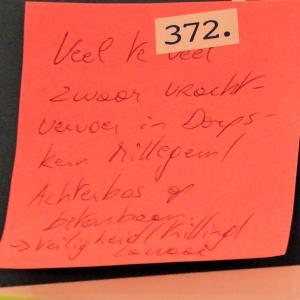 372.
Veel te veel
zwaar vracht-
vervoer in Dorps-
kern Millegem/
Achterbos op
betonbaan
→ veiligheid/trilling/